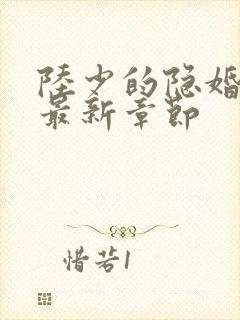 陸少的隐婚
最新章節
惜若1